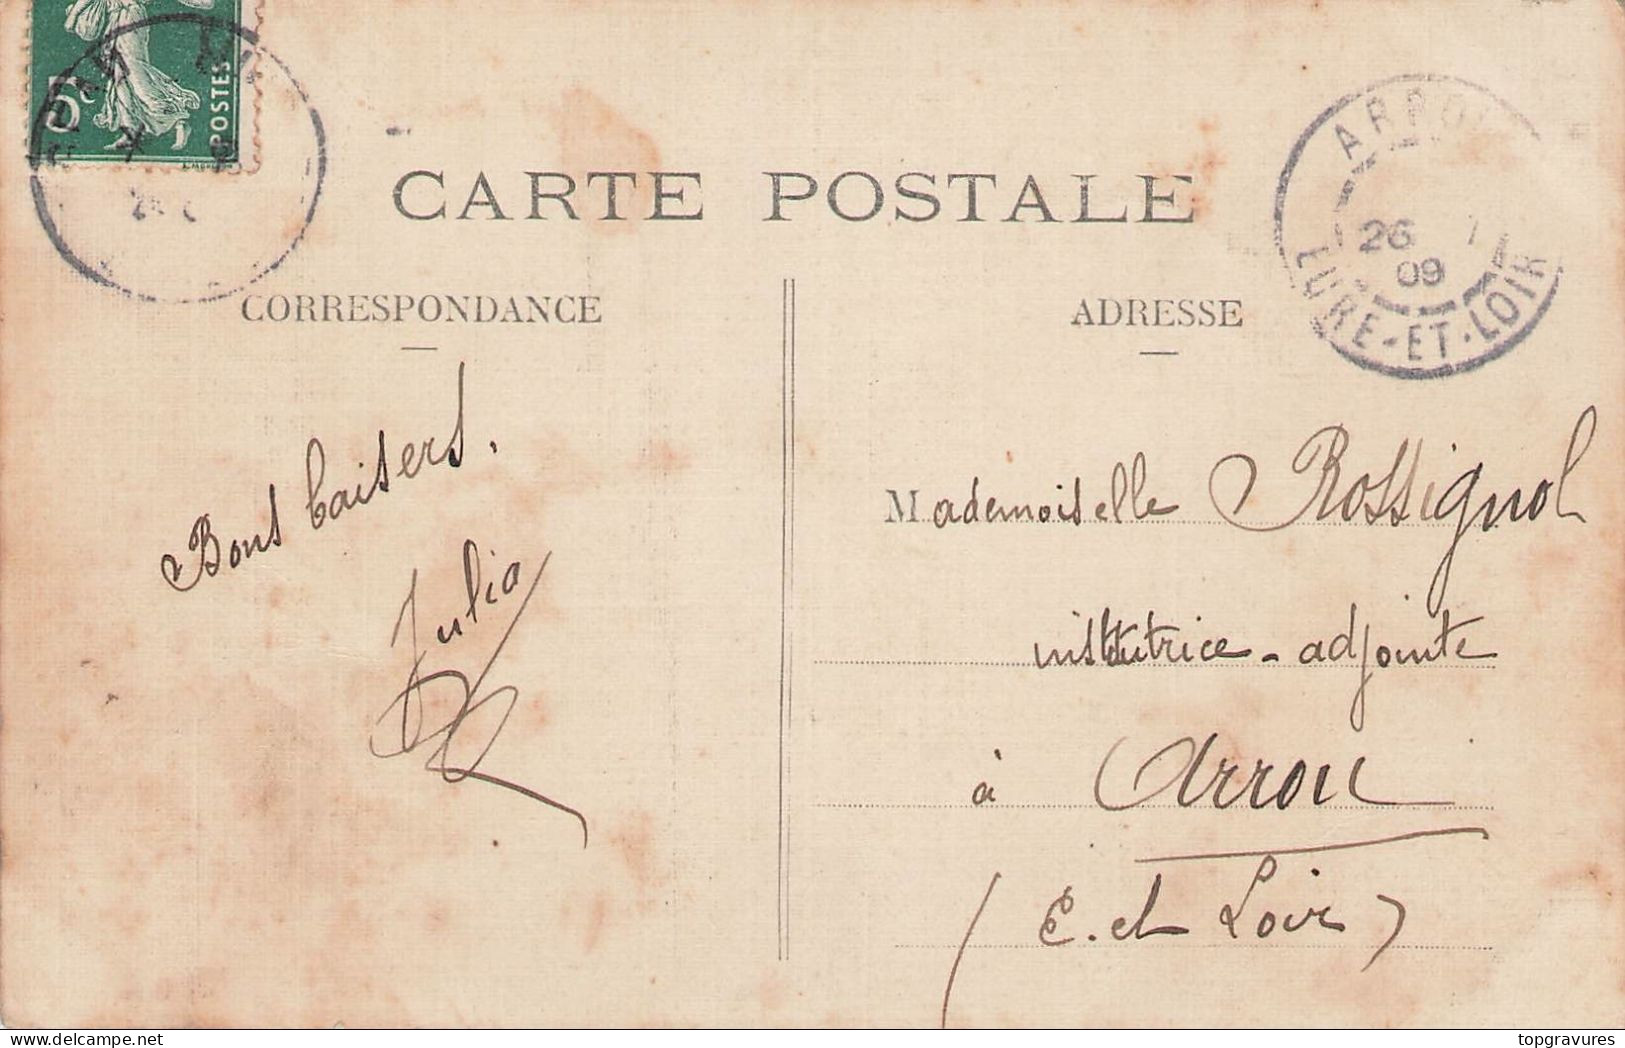 5c
POSTES
CARTE POSTALE
ARROU
26
09
EURE-ET-LOIR
CORRESPONDANCE
ADRESSE
Bons baisers.
Julia
Mademoiselle Rossignol
institutrice-adjointe
à Arrou
(E. et Loir)
delcampe.net
topgravures